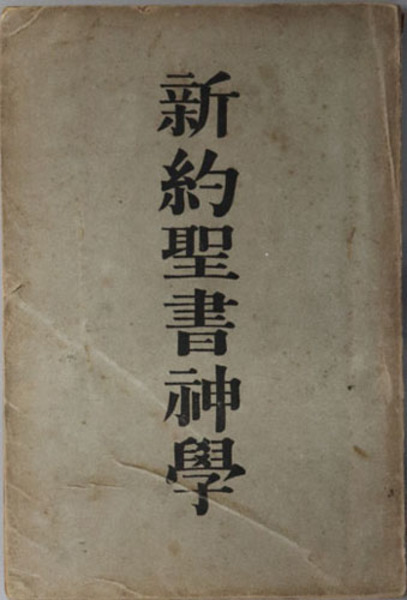 新約聖書神學